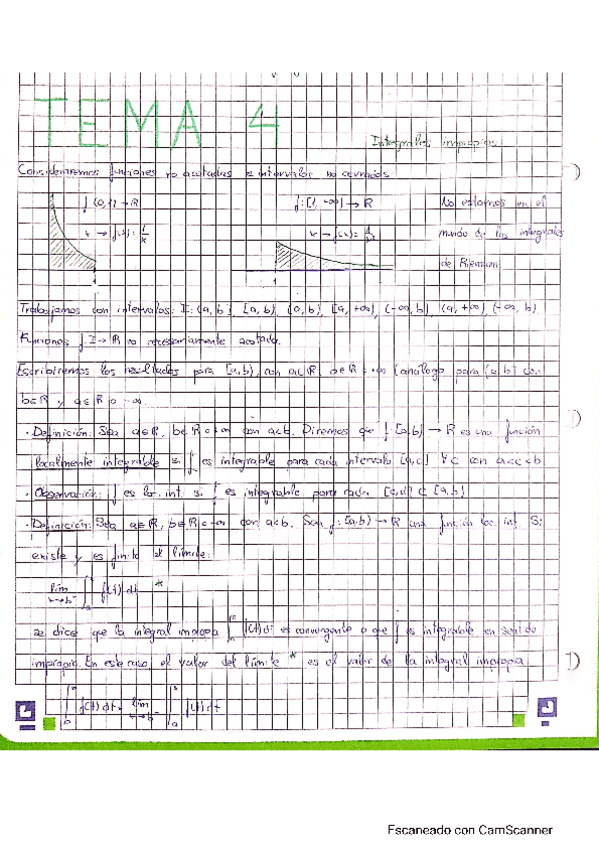 TEMA 4
Integrales impropias
Consideraremos funciones no acotadas e intervalos no cerrados
f: (0,1) → R
f: [1, +∞) → R
No estamos en el
x → f(x) = 1/x
x → f(x) =
mundo de las integrales
de Riemann
1
1
Trabajamos con intervalos: I: (a, b), [a, b), (a, b), [a, +∞), (-∞, b], (a, +∞), (-∞, b)
Funciones f: I → R no necesariamente acotada.
Escribiremos los resultados para [a, b), con a ∈ R, b ∈ R o +∞ (análogo para (a, b] con
b ∈ R y a ∈ R o -∞.
· Definición: Sea a ∈ R, b ∈ R o +∞ con a<b. Diremos que f: [a, b) → R es una función
localmente integrable si f es integrable para cada intervalo [a, c] ∀ c con a<c<b
· Observación: f es loc. int. si f es integrable para cada [c, d] ⊂ [a, b)
· Definición: Sea a ∈ R, b ∈ R o +∞ con a<b. Sea f: [a, b) → R una función loc. int. Si
existe y es finito el límite:
lim x→b⁻ ∫ₐˣ f(t) dt *
se dice que la integral impropia ∫ₐᵇ f(t) dt es convergente o que f es integrable en sentido
impropio. En este caso el valor del límite * es el valor de la integral impropia
∫ₐᵇ f(t) dt = lim x→b⁻ ∫ₐˣ f(t) dt
Escaneado con CamScanner